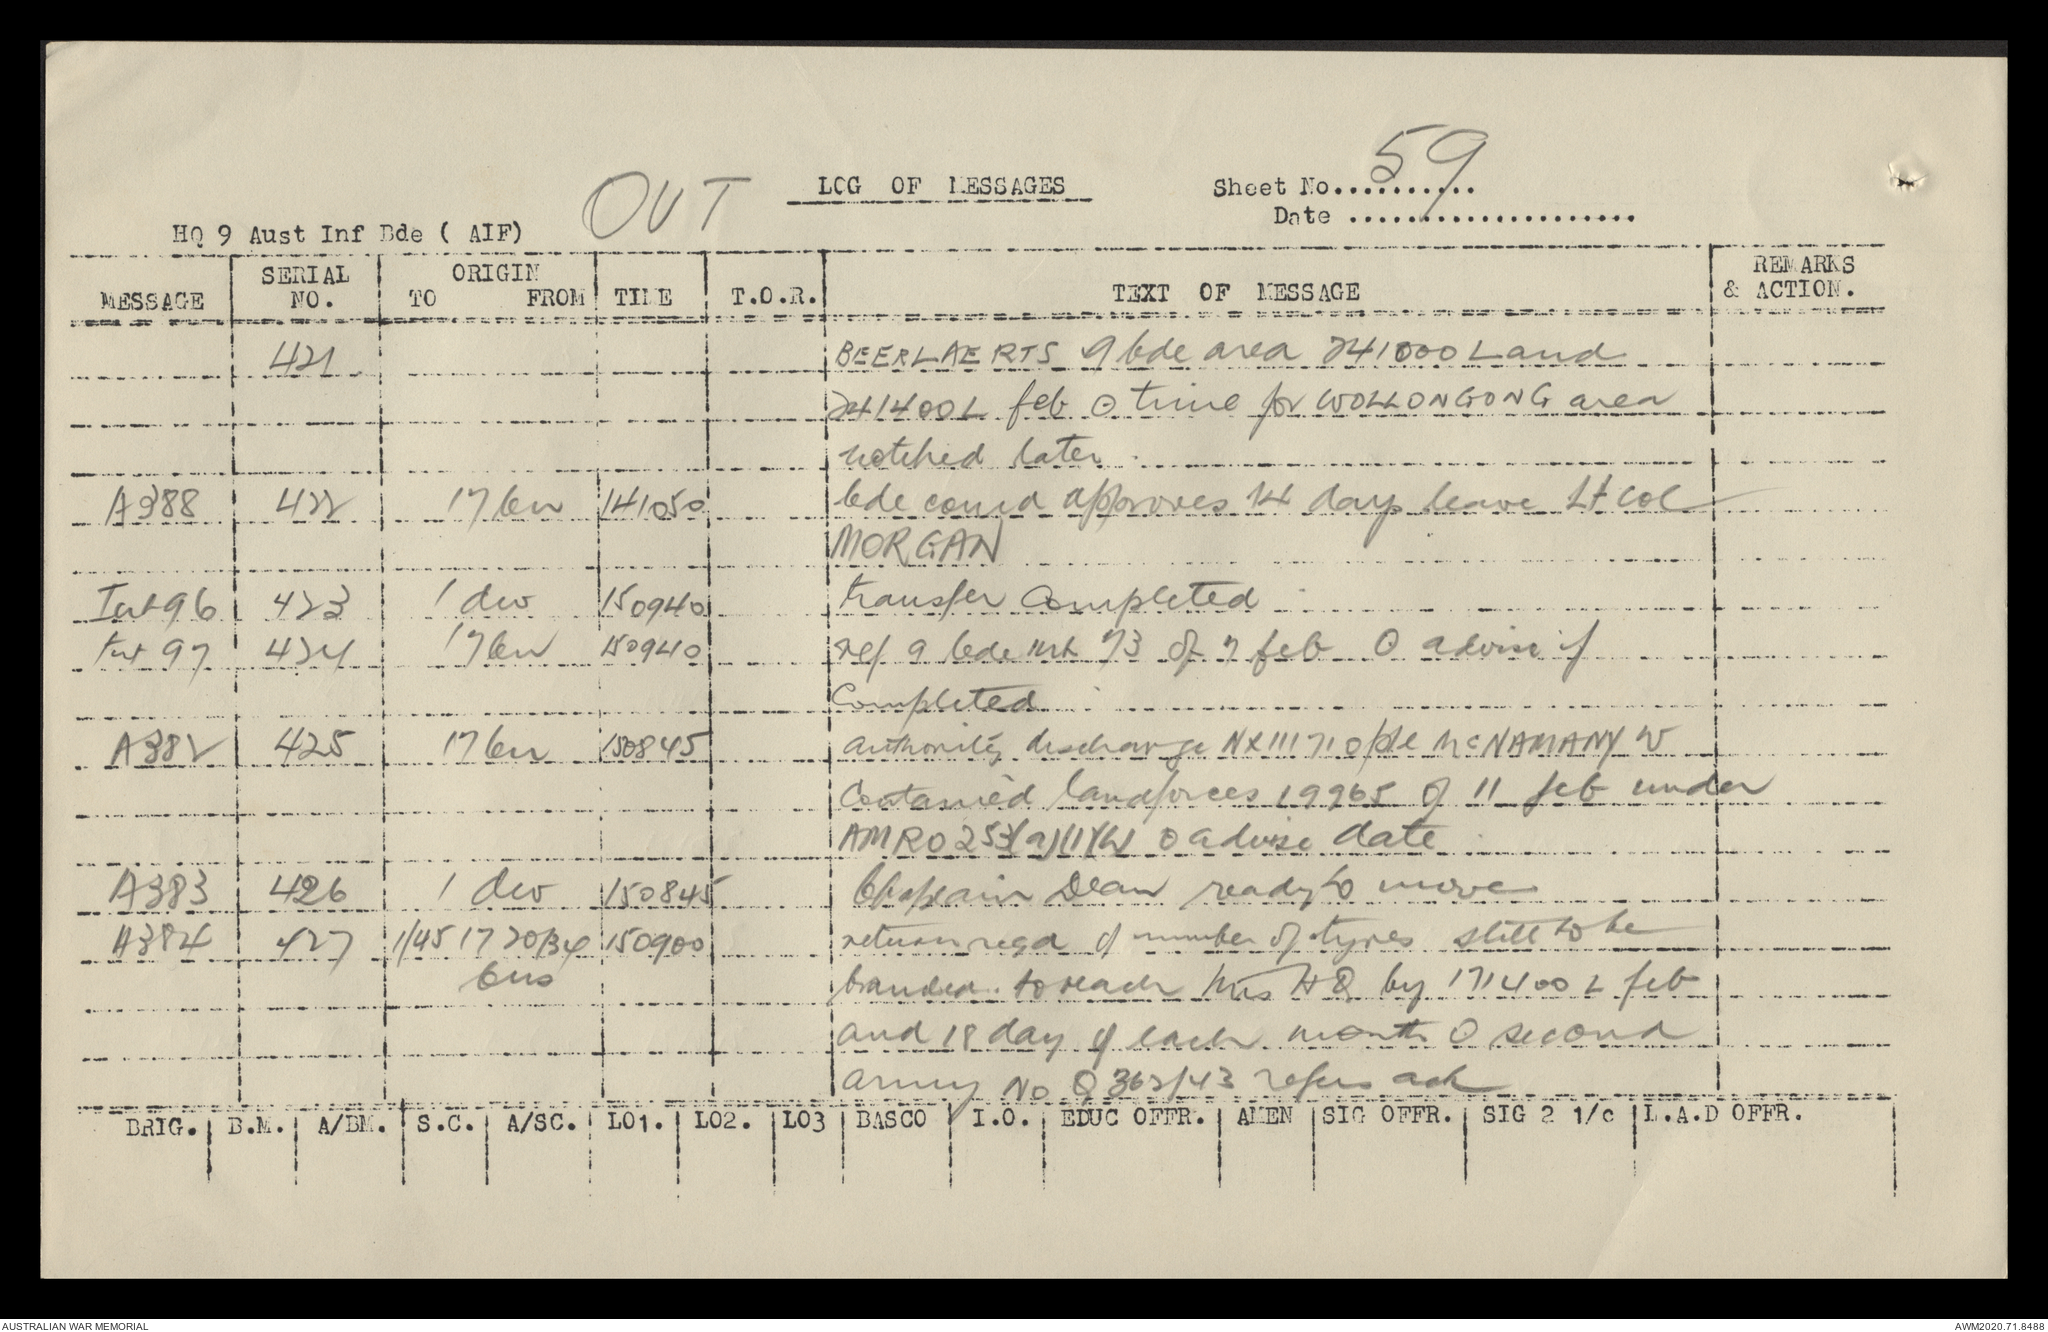 OUT
LOG OF MESSAGES
Sheet No.......... 59
Date ....................
HQ 9 Aust Inf Bde ( AIF)
MESSAGE SERIAL NO. ORIGIN TO FROM TIME T.O.R. TEXT OF MESSAGE REMARKS & ACTION.
421 BEERLAERTS 9 bde area 241000L and
241400L feb O time for WOLLONGONG area
notified later
A388 422 17 bn 141050 bde comd approves 14 days leave Lt Col
MORGAN
Int 96 423 1 div 150940 transfer completed
Int 97 424 17 bn 150940 ref 9 bde int 73 of 7 feb O advise if
completed
A382 425 17 bn 150845 authority discharge NX111710 pte McNAMANY W
contained landforces 19965 of 11 feb under
AMRO 253(a)(1) O advise date
A383 426 1 div 150845 Chaplain Dean ready to move
A384 427 1/45 17 20/34 150900 return reqd of number of tyres still to be
bns branded. to reach this HQ by 171400L feb
and 18 day of each month O second
army No Q 362/43 refers ack
BRIG. B.M. A/BM. S.C. A/SC. LO1. LO2. LO3 BASCO I.O. EDUC OFFR. AMEN SIG OFFR. SIG 2 1/c L.A.D OFFR.
AUSTRALIAN WAR MEMORIAL
AWM2020.71.8488